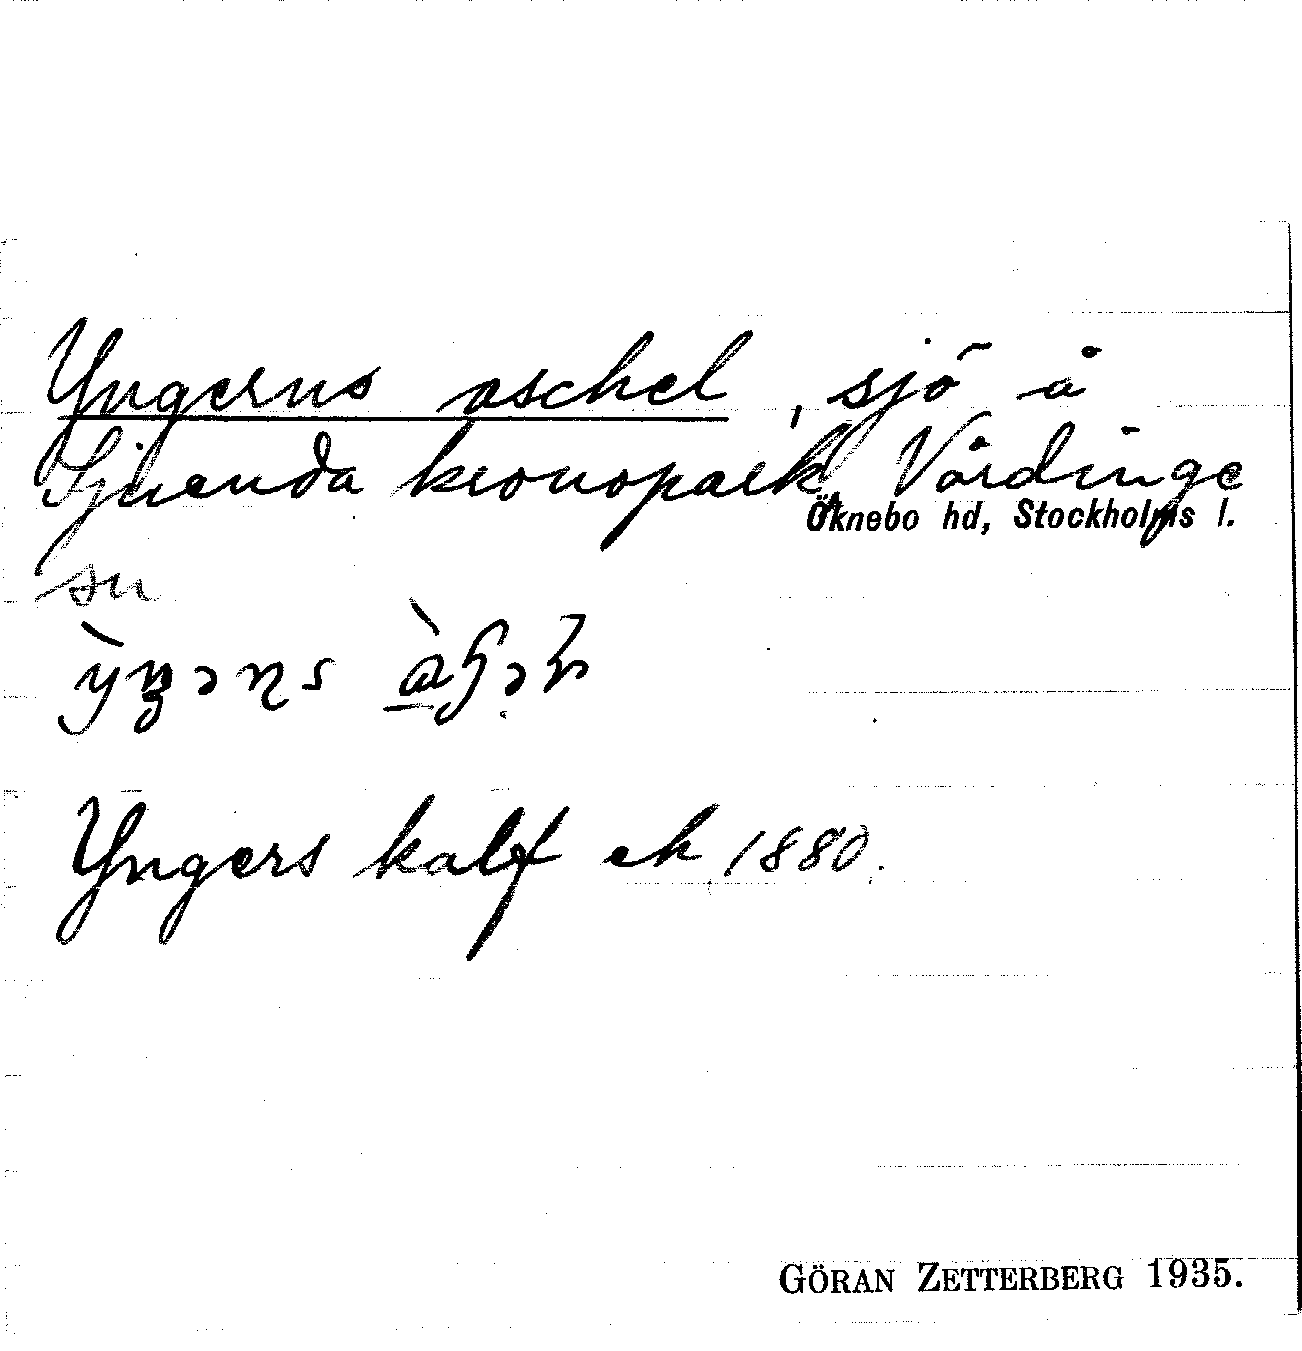 Yngerns aschel, sjö å
Sjuenda kronopark, Vårdinge
Öknebo hd, Stockholms l.
su
Yngers kalf ek 1880.
GÖRAN ZETTERBERG 1935.